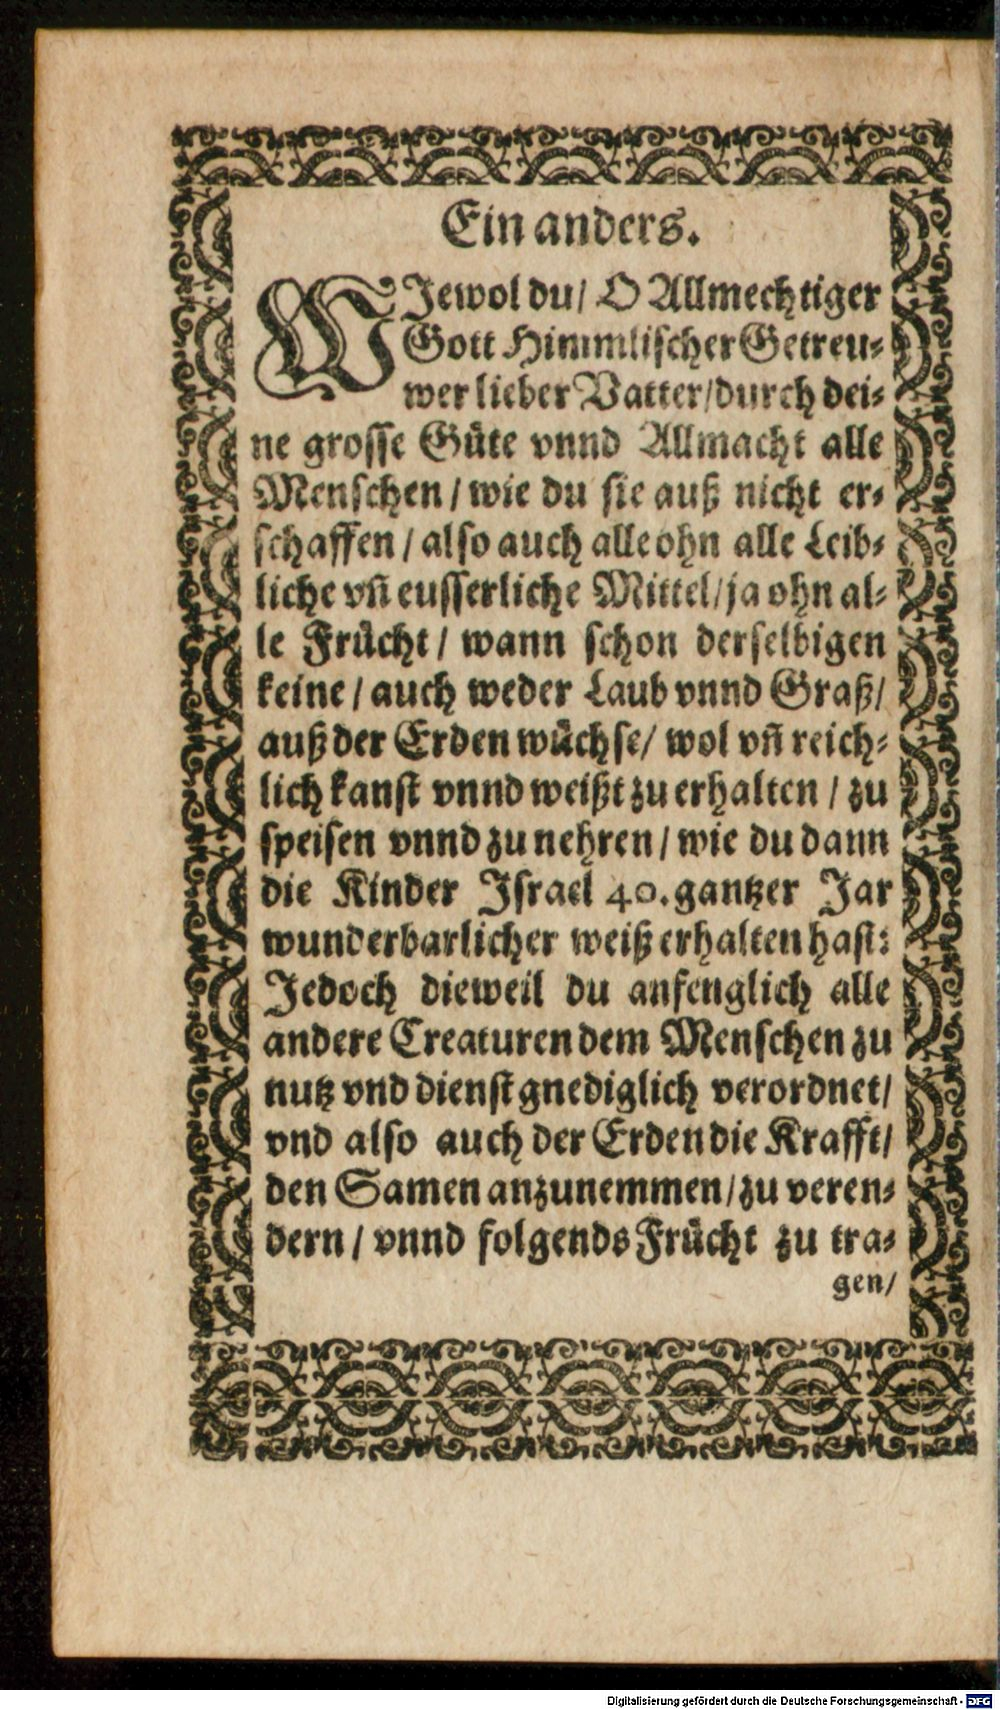 Ein anders.
WJewol du/ O Allmechtiger
Gott Himmlischer Getreu-
wer lieber Vatter/durch dei-
ne grosse Gůte vnnd Allmacht alle
Menschen/ wie du sie auß nicht er-
schaffen/ also auch alle ohn alle Leib-
liche vñ eusserliche Mittel/ja ohn al-
le Frůcht/ wann schon derselbigen
keine/ auch weder Laub vnnd Graß/
auß der Erden wůchse/ wol vñ reich-
lich kanst vnnd weißt zu erhalten/ zu
speisen vnnd zu nehren/ wie du dann
die Kinder Israel 40. gantzer Jar
wunderbarlicher weiß erhalten hast:
Jedoch dieweil du anfenglich alle
andere Creaturen dem Menschen zu
nutz vnd dienst gnediglich verordnet/
vnd also auch der Erden die Krafft/
den Samen anzunemmen/zu veren-
dern/ vnnd folgends Frůcht zu tra-
gen/
Digitalisierung gefördert durch die Deutsche Forschungsgemeinschaft - DFG